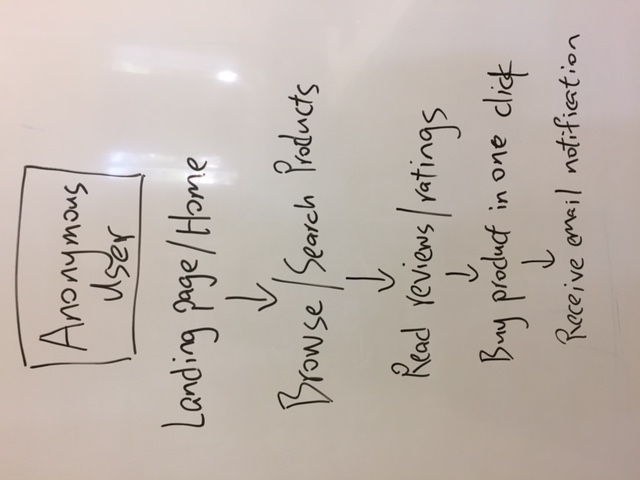 Anonymous
User
Landing page/Home
↓
Browse/Search Products
↓
Read reviews/ratings
↓
Buy product in one click
↓
Receive email notification